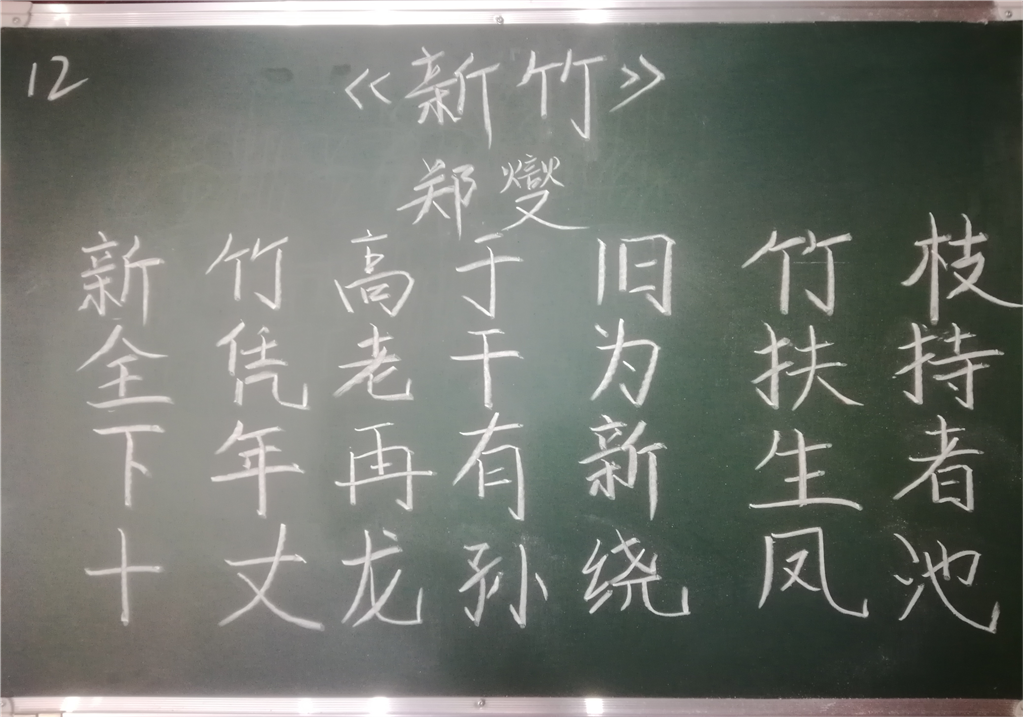 12
《新竹》
郑燮
新竹高于旧竹枝
全凭老干为扶持
下年再有新生者
十丈龙孙绕凤池